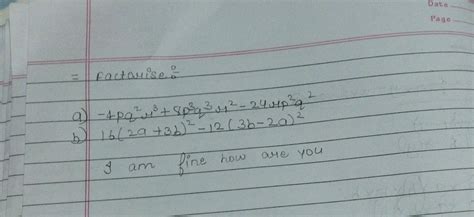 Date
Page
= Factorise :-
a) -4pq²r³ + 8p³q³r² - 24rp²q²
b) 16(2a + 3b)² - 12(3b - 2a)²
I am fine how are you